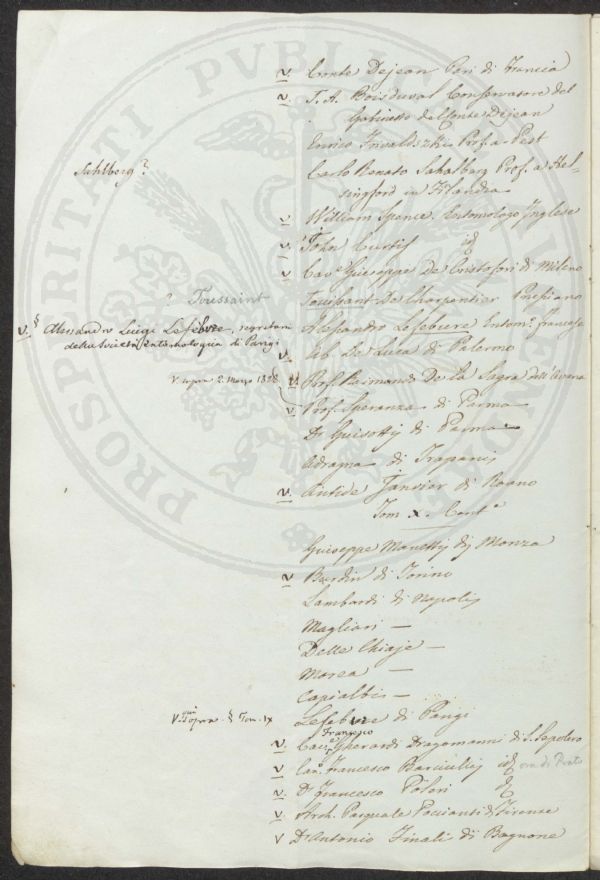 v. Conte Dejean Pari di Francia
v. T. A. Boisduval Conservatore del
Gabinetto del Conte Dejean
Enrico Prof. a Pest
Sahlberg? Carlo Renato Sahalberg Prof. a Hel-
singford in Filandia
v. William Spence Entomologo Inglese
v. John Curtis id
v. Cav. Giuseppe De Cristofori di Milano
? Toussaint Toussant De Charpentier Prussiano
v. § Alessandro Luigi Lefebvre, segretario Alessandro Lefebure Entom. francese
della Società Entomologica di Parigi
v. Ab. De Luca di Palermo
V. sopra 2. Marzo 1828 v. Prof. Raimondo De La Sagra dell'Avana
v. Prof. Speranza di Parma
Dr Guisotti di Parma
Adragna di Trapani
v. Antide Janvier di Roano
Tom X. Cont.e
Giuseppe Manetti di Monza
v. Burdin di Torino
Lombardi di Napoli
Magliari —
Delle Chiaje —
Morea —
Capialbi —
V. qui sopra § Tom. IX Lefebvre di Parigi
v. Cav.e Francesco Gherardi Dragomanni di S. Sepolcro
v. Can.o Francesco id ora di Prato
v. Dr Francesco Polori id
v. Arch. Pasquale Poccianti di Firenze
v Dr Antonio Finali di Bagnone
PROSPERITATI PVBLICAE